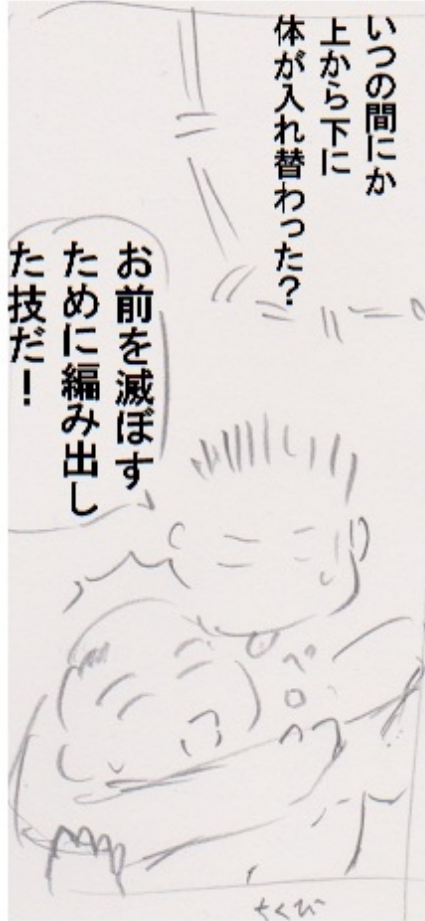 いつの間にか
上から下に
体が入れ替わった?
お前を滅ぼす
ために編み出し
た技だ!
ペロペロ
ちくび